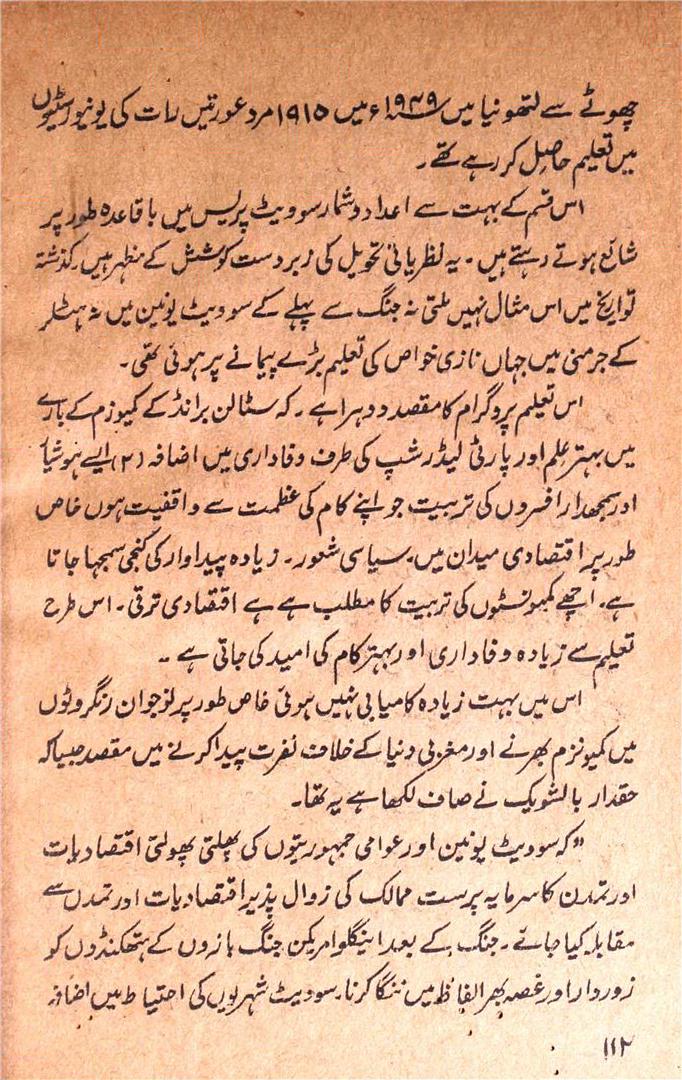 چھوٹے سے لتھونیا میں ۱۹۴۹ء میں ۱۹۱۵ مرد عورتیں رات کی یونیورسٹیوں
میں تعلیم حاصل کر رہے تھے۔
اس قسم کے بہت سے اعداد و شمار سوویٹ پریس میں باقاعدہ طور پر
شائع ہوتے رہتے ہیں۔ یہ نظریاتی تحویل کی زبردست کوشش کے مظہر ہیں۔ گذشتہ
تواریخ میں اس مثال نہیں ملتی نہ جنگ سے پہلے کے سوویٹ یونین میں نہ ہٹلر
کے جرمنی میں جہاں نازی خواص کی تعلیم بڑے پیمانے پر ہوئی تھی۔
اس تعلیم پروگرام کا مقصد دوہرا ہے۔ کہ سٹالن برانڈ کے کمیوزم کے بارے
میں بہتر علم اور پارٹی لیڈرشپ کی طرف وفاداری میں اضافہ (۲) ایسے ہوشیار
اور سمجھدار افسروں کی تربیت جو اپنے کام کی عظمت سے واقفیت ہوں خاص
طور پر اقتصادی میدان میں۔ سیاسی شعور۔ زیادہ پیداوار کی کنجی سمجھا جاتا
ہے۔ اچھے کمیونسٹوں کی تربیت کا مطلب ہے ہے اقتصادی ترقی۔ اس طرح
تعلیم سے زیادہ وفاداری اور بہتر کام کی امید کی جاتی ہے ۔۔
اس میں بہت زیادہ کامیابی نہیں ہوئی خاص طور پر نوجوان رنگروٹوں
میں کمیونزم بھرنے اور مغربی دنیا کے خلاف نفرت پیدا کرنے میں مقصد جیسا کہ
حقدار بالشویک نے صاف لکھا ہے یہ تھا۔
"کہ سوویٹ یونین اور عوامی جمہوریتوں کی پھلتی پھولتی اقتصادیات
اور تمدن کا سرمایہ پرست ممالک کی زوال پذیر اقتصادیات اور تمدن سے
مقابلہ کیا جائے۔ جنگ کے بعد اینگلو امریکن جنگ بازوں کے ہتھکنڈوں کو
زوردار اور غصہ بھر الفاظ میں ننگا کرنا۔ سوویٹ شہریوں کی احتیاط میں اضافہ
۱۱۲